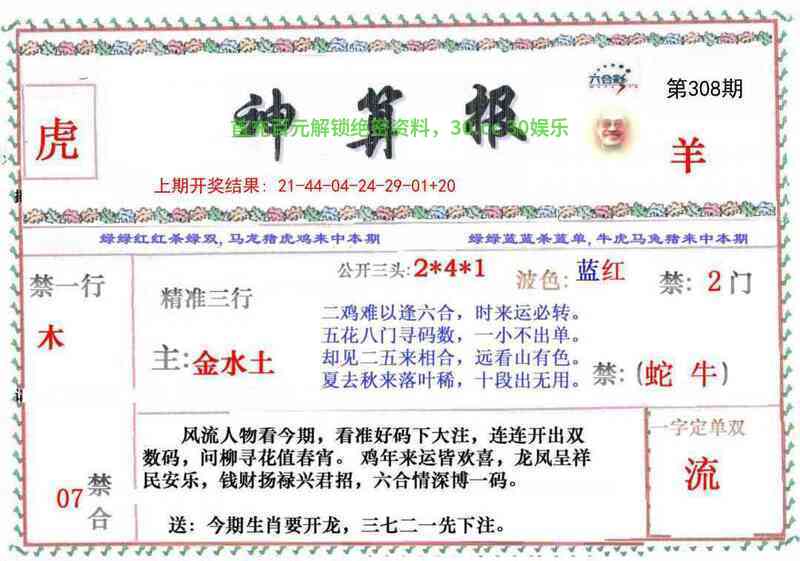 六合彩
第308期
虎
神算报
首充百元解锁绝密资料，30.cc 50娱乐
羊
上期开奖结果：21-44-04-24-29-01+20
绿绿红红杀绿双,马龙猪虎鸡来中本期
绿绿蓝蓝杀蓝单,牛虎马兔猪来中本期
禁一行
木
精准三行
主:金水土
公开三头:2*4*1
波色:蓝红
禁:2门
二鸡难以逢六合，时来运必转。
五花八门寻码数，一小不出单。
却见二五来相合，远看山有色。
夏去秋来落叶稀，十段出无用。
禁:(蛇 牛)
07
禁合
风流人物看今期，看准好码下大注，连连开出双
数码，问柳寻花值春宵。鸡年来运皆欢喜，龙凤呈祥
民安乐，钱财扬禄兴君招，六合情深博一码。
送：今期生肖要开龙，三七二一先下注。
一字定单双
流